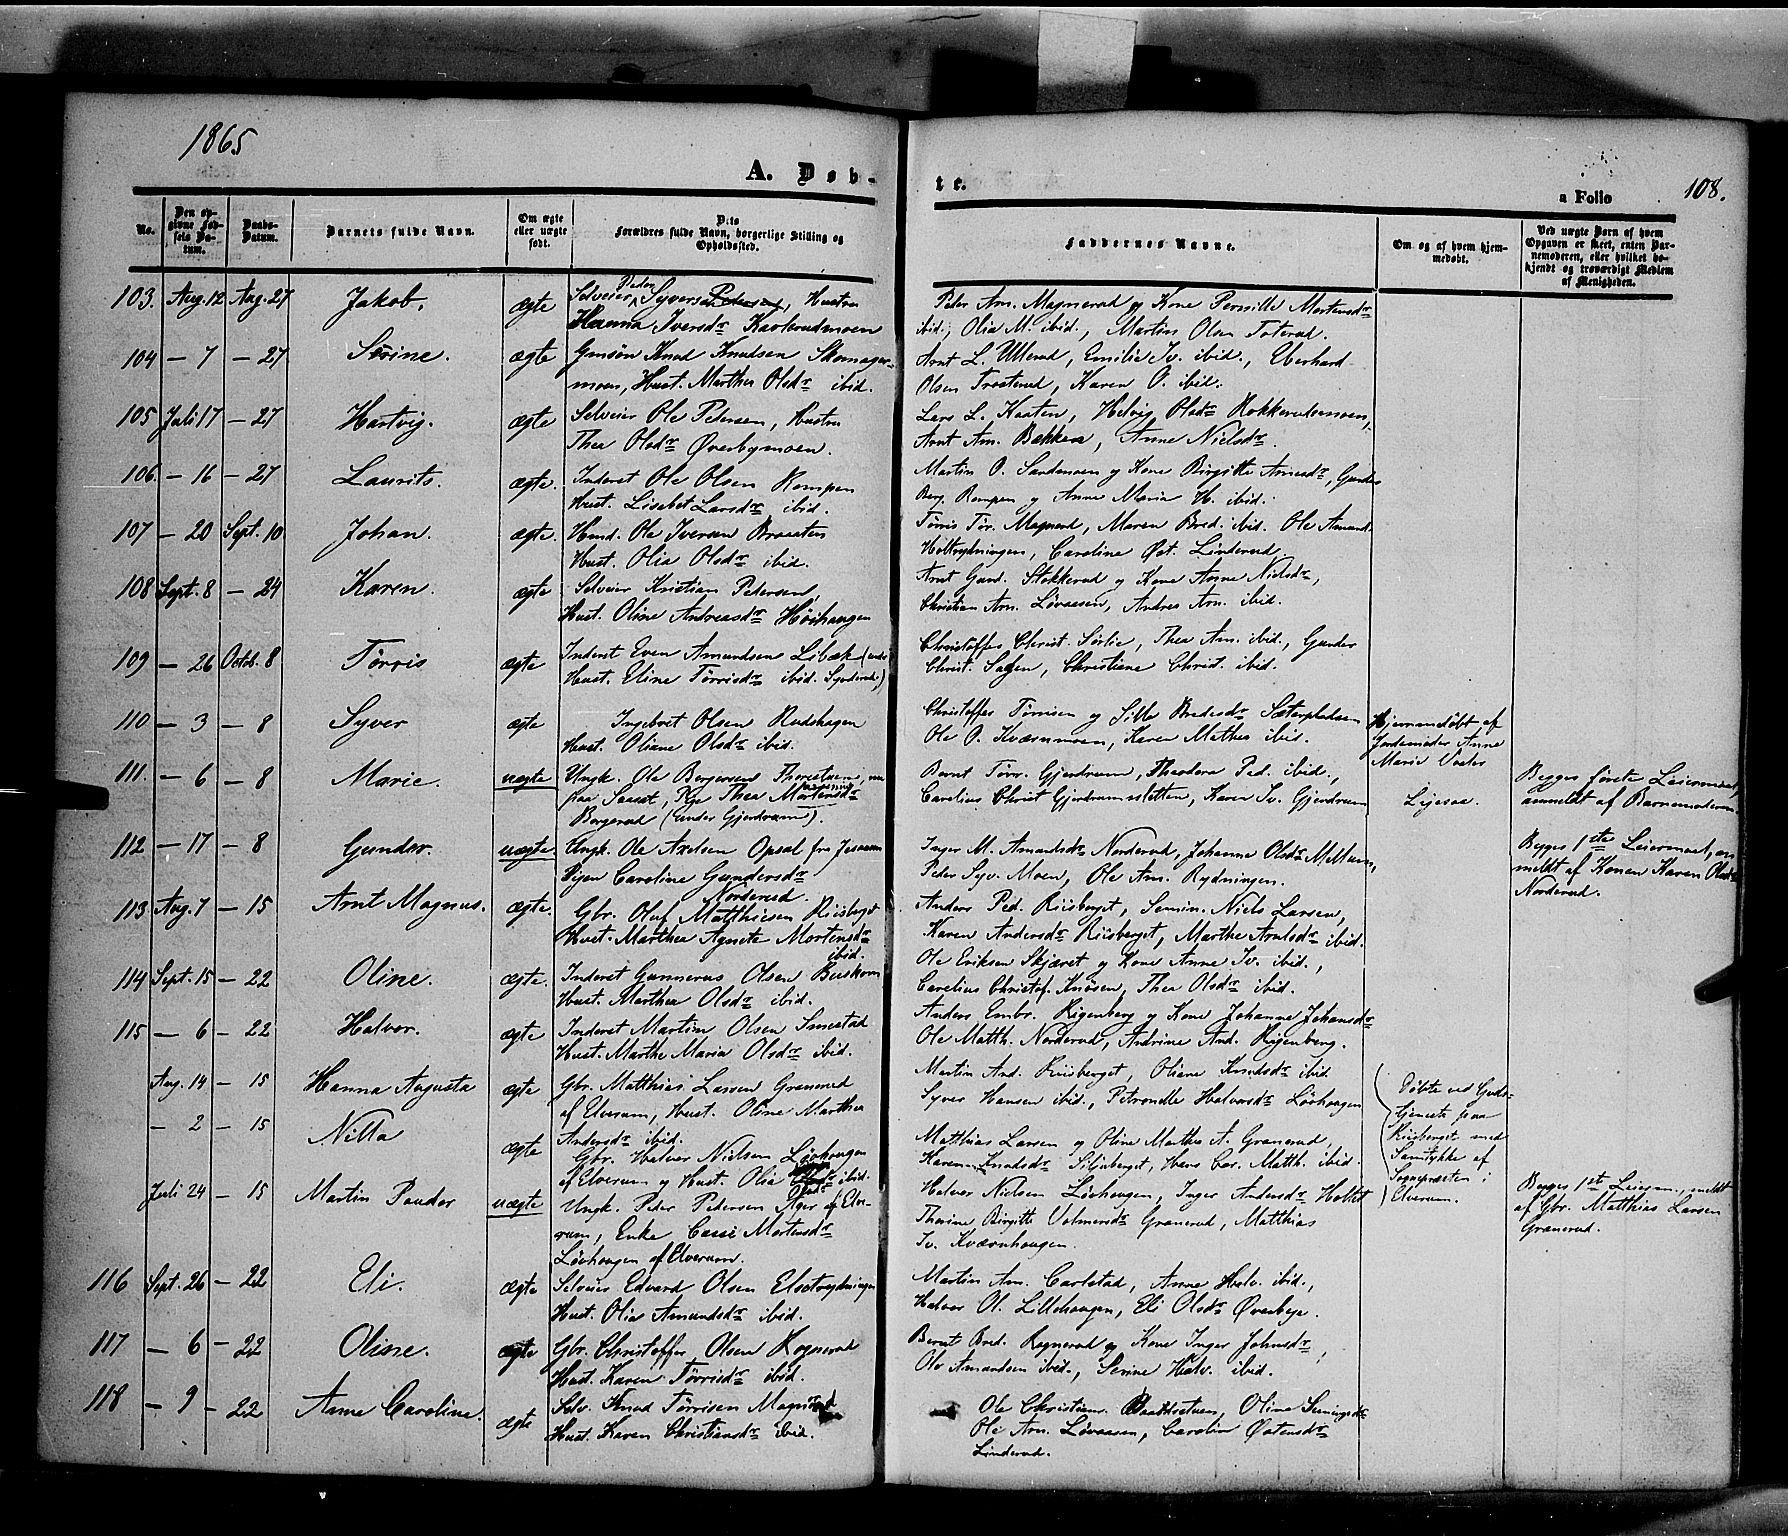 1865
A. Døb-
te.
a Folio
108.
No.
Den op-
givne Fød-
sels Da-
tum.
Daabs-
Datum.
Barnets fulde Navn.
Om ægte
eller uægte
født.
Dets
Forældres fulde Navn, borgerlige Stilling og
Opholdssted.
Faddernes Navne.
Om og af hvem hjem-
medøbt.
Ved uægte Børn af hvem
Opgaven er skeet, enten Bar-
nemoderen, eller hvilket be-
kjendt og troværdigt Medlem
af Menigheden.
103. Aug. 12 Aug. 27 Jakob. ægte Selveier Peder Syversen Petersen, Hustru
Hanna Iversdr Kaaterudmoen
Peder Am. Magnerud og Kone Pernille Mortensdr
ibid., Olia M. ibid., Martin Olsen Toterud.
104 — 7 — 27 Serine. ægte Gmsøn Knud Knudsen Skomager-
moen, Hust. Marthea Olsdr ibid.
Arnt L. Ullerud, Emilie Iv. ibid., Eberhard
Olsen Trosterud, Karen O. ibid.
105 Juli 17 — 27 Hartvig. ægte Selveier Ole Petersen, Hustru
Thea Olsdr Øverbymoen.
Lars L. Kaaten, Helvig Olsdr Rokkerudmoen,
Arnt Am. Bakken, Anne Nielsdr.
106. — 16 — 27 Laurits. ægte. Inderst Ole Olsen Kempen
Hust. Lisabet Larsdr ibid.
Martin O. Sandmoen og Kone Birgitte Arnesdr, Gunder
Berg. Rompen og Anne Maria H. ibid.
107 — 20 Sept. 10 Johan. ægte. Husd. Ole Iversen Braaten
Hust. Olia Olsdr ibid.
Tørris Tør. Magnerud, Maren Bred. ibid. Ole Amund.
Holtrydningen, Caroline Øst. Linderud.
108 Sept. 8 — 24 Karen. ægte Selveier Kristian Petersen,
Hust. Oline Andreasdr Høihaugen
Arnt Gund. Stokkerud og Kone Anne Nielsdr,
Christian Am. Løvaasen, Andres Am. ibid.
109 — 26 Octob. 8 Tørris ægte Inderst Even Amundsen Libæk (under
Hust. Eline Tørrisdr ibid. Synderud)
Christoffer Christ. Sørlie, Thea Am. ibid., Gunder
Christ. Sagen, Christiane Christ. ibid.
110 — 3 — 8 Syver ægte Ingebret Olsen Rudshagen
Hust. Oliane Olsdr ibid.
Christoffer Tørrisen og Sille Bredesdr Sæterpladsen
Ole O. Kværnmoen, Karen Mathea ibid.
Hjemmedøbt af
Jordemoder Anne
Marie Vaaler
111. — 6 — 8 Marie. uægte Ungk. Ole Borgersen Thorestuen, nu
paa Saaset, Pige Thea Mortensdr
Borgerud (under Gjerdrum).
Bernt Tørr. Gjerdrum, Theodora Ped. ibid.,
Carelius Christ Gjerdrumsletten, Karen Iv. Gjerdrum
Ligesaa.
Begges første Leiermaal,
anmeldt af Barnemoderen
112 — 17 — 8 Gunder. uægte. Ungk. Ole Axelsen Opsal fra Jasaasen
Pigen Caroline Gundersdr
Norderud.
Inger M. Amundsdr Norderud, Johanne Olsdr Mellum,
Peder Syv. Moen, Ole Am. Rydningen.
Begges 1ste Leiermaal, an
meldt af Konen Karen Olsdr
Norderud.
113 Aug. 7 — 15 Arnt Magnus. ægte. Gbr. Oluf Matthiesen Riisberget
Hust. Marthea Agnete Mortensdr
ibid.
Anders Ped. Riisberget, Semin. Niels Larsen,
Karen Andersdr Riisberget, Marthe Arnesdr ibid.
114 Sept. 15 — 22 Oline. ægte. Inderst Gunnerus Olsen Buskoven
Hust. Marthea Olsdr ibid.
Ole Eriksen Skjæret og Kone Anne Iv. ibid.,
Carelius Christof. Knosen, Thea Olsdr ibid.
115 — 6 — 22 Halvor. ægte Inderst Martin Olsen Smestad
Hust. Marthe Maria Olsdr ibid.
Anders Embr. Rigenberg og Kone Johanne Johansdr
Ole Matth. Norderud, Andrine And. Rigenberg.
Aug. 14 — 15 Hanna Augusta ægte Gbr. Matthias Larsen Granerud
af Elverum, Hust. Oline Marthea
Andersdr ibid.
Martin And. Riisberget, Oliane Knudsdr ibid
Syver Hansen ibid., Petronelle Halvorsdr Løvhaugen
Døbte ved Guds-
tjeneste paa
Riisberget med
Samtykke af
Sognepræsten i
Elverum.
— 2 — 15 Nilla ægte Gbr. Halvor Nielsen Løvhaugen
af Elverum og Hust. Olia Olsdr ibid.
Matthias Larsen og Oline Marthea A. Granerud,
Karen Knudsdr Siljuberget, Hans Car. Matth. ibid.
Juli 24 — 15 Martin Peder uægte Ungk. Peder Petersen Ager af Elve-
rum, Enke Cassi Mortensdr
Løvhaugen af Elverum.
Halvor Nielsen Løvhaugen, Inger Andersdr Holtet
Therine Birgitte Volmersdr Granerud, Matthias
Iv. Kværnhaugen.
Begges 1ste Leierm., meldt
af Gbr. Matthias Larsen
Granerud.
116 Sept. 26 — 22 Eli. ægte Selveier Edvard Olsen Elsetrydningen
Hust. Olia Amundsdr ibid.
Martin Am. Carlstad, Anne Halv. ibid.,
Halvor Ol. Lillehaugen, Eli Olsdr Øverbye.
117 — 6 — 22 Oline. ægte Gbr. Christoffer Olsen Rognerud
Hust. Karen Tørrisdr ibid.
Bernt Bred. Rognerud og Kone Inger Johnsdr,
Ole Amundsen ibid., Serine Halv. ibid.
118 — 9 — 22 Anne Caroline. ægte Selv. Knud Tørrisen Magnerud
Hust. Karen Christiansdr ibid.
Ole Christians. Baadstuen, Olina Semingsdr
Ole Am. Løvaasen, Carolin Østensdr
Linderud.